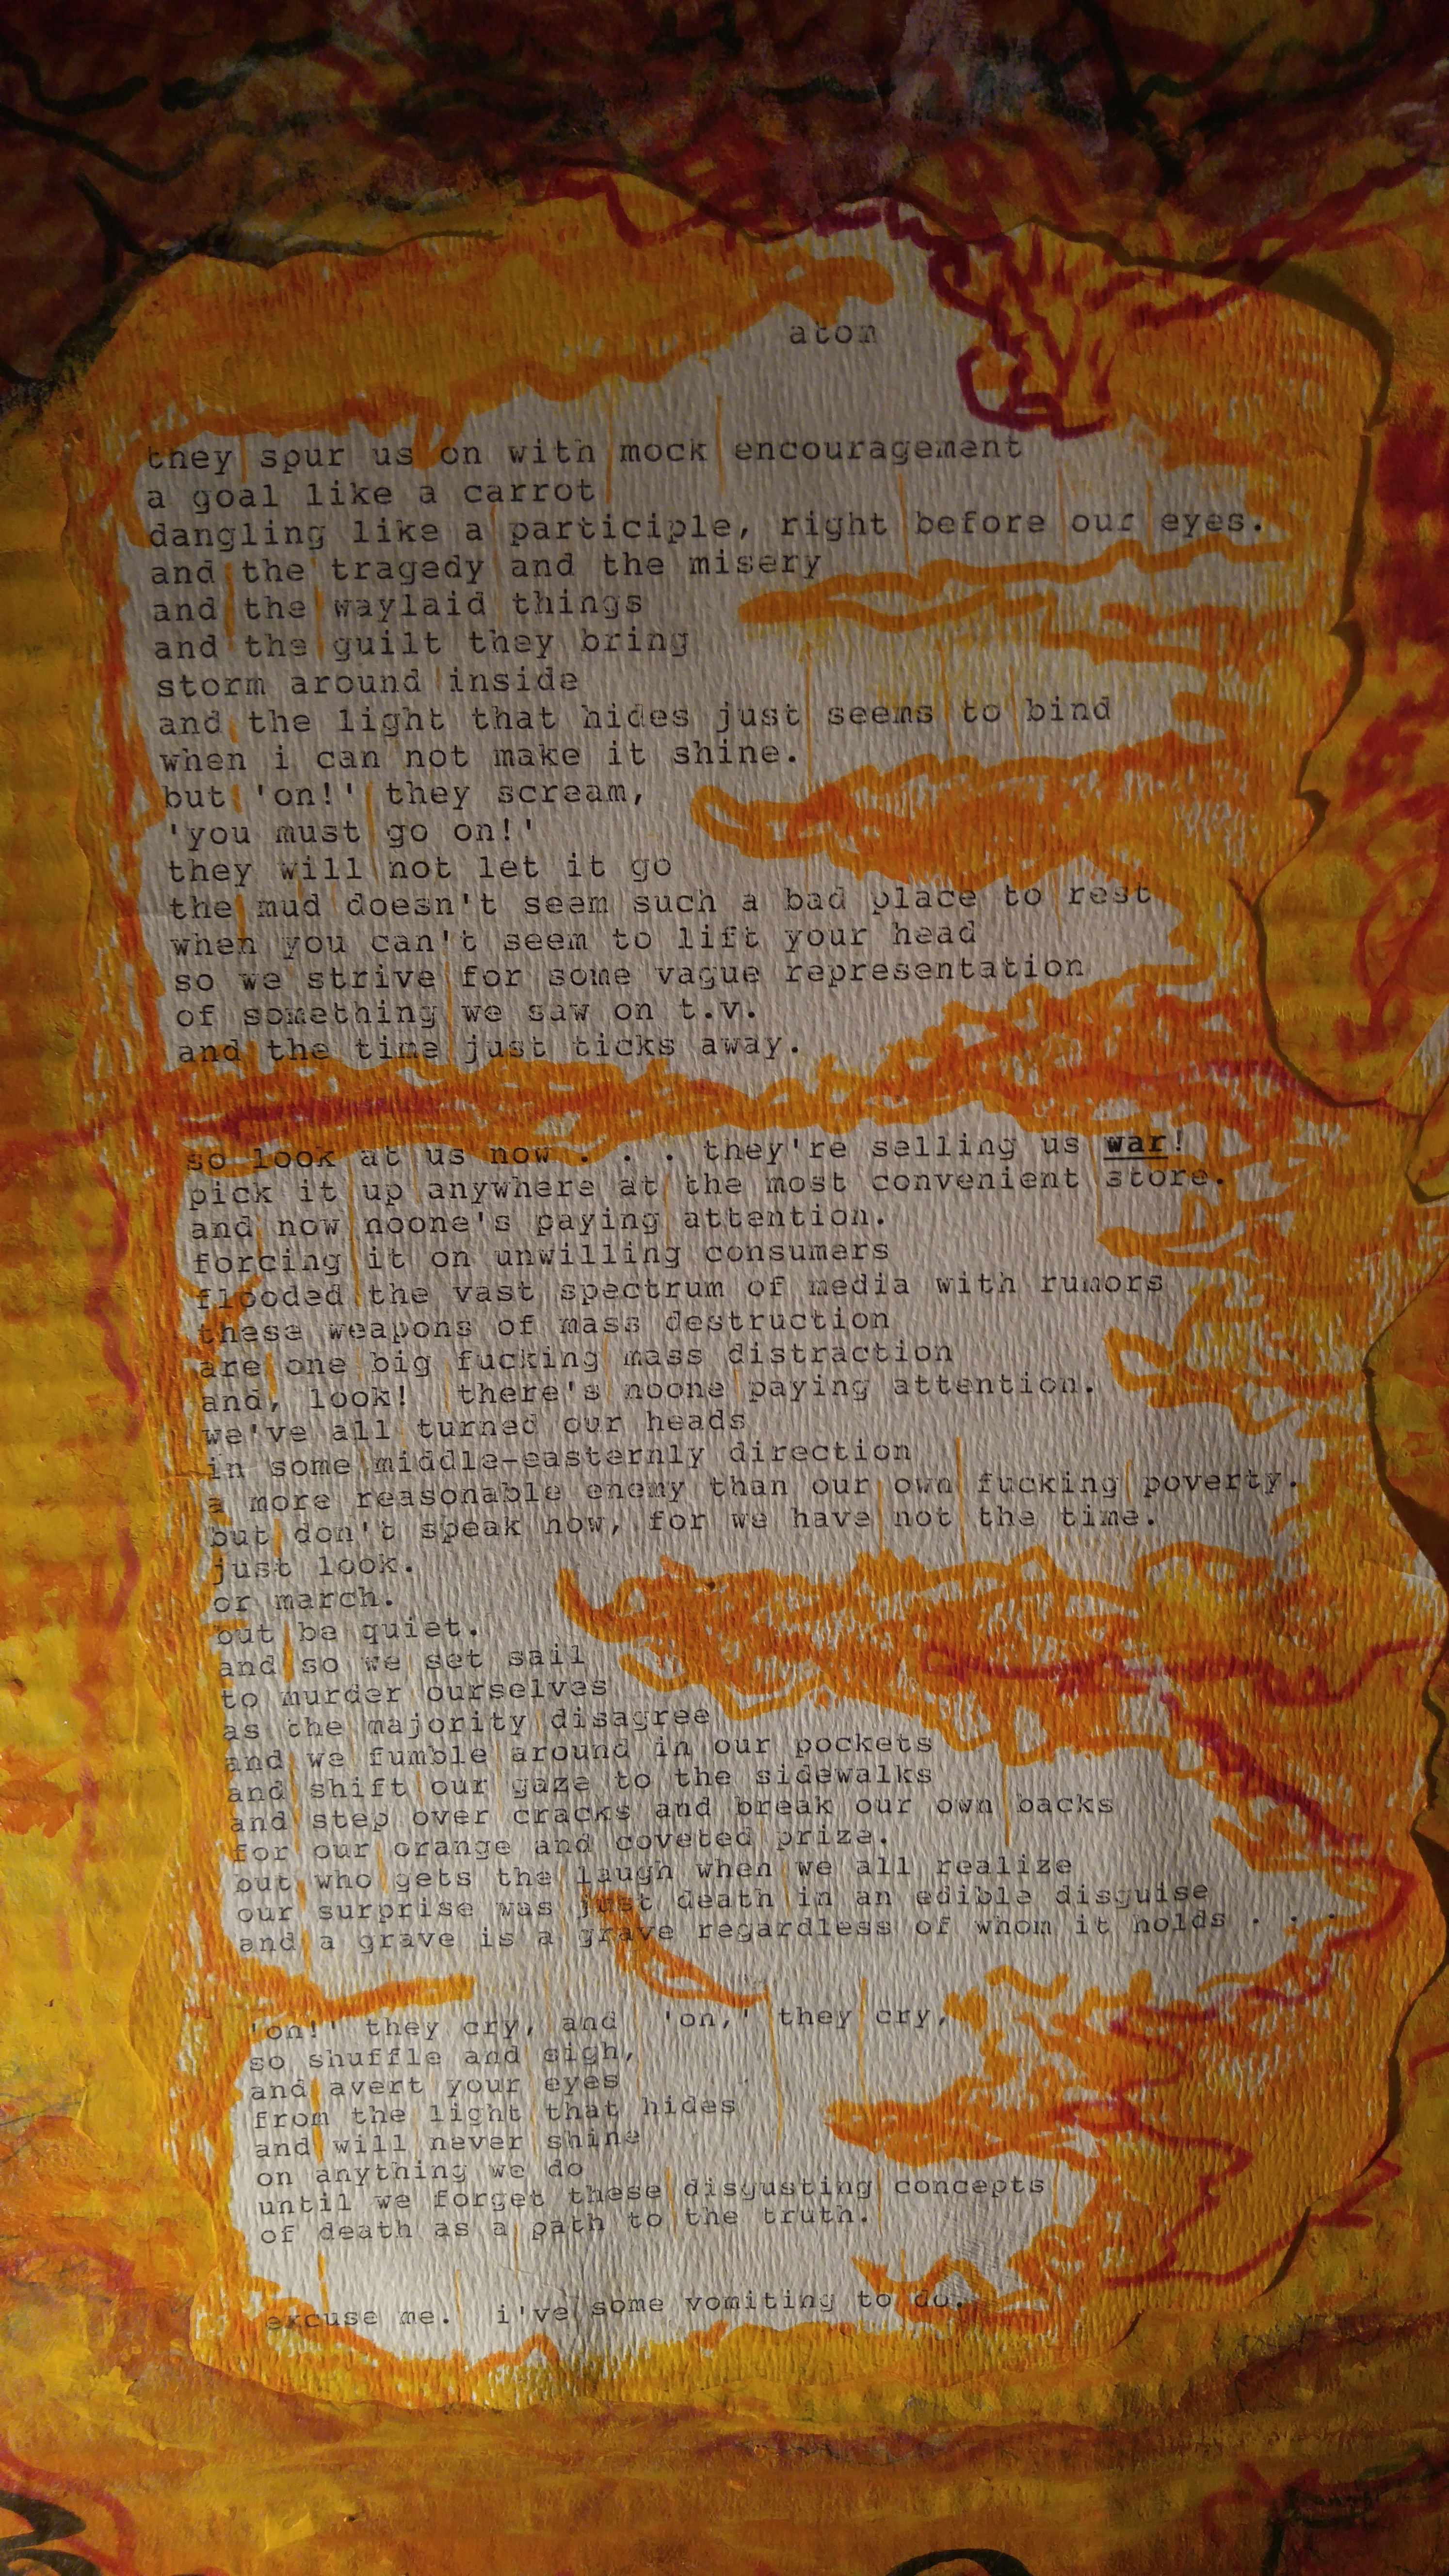 atom
they spur us on with mock encouragement
a goal like a carrot
dangling like a participle, right before our eyes.
and the tragedy and the misery
and the waylaid things
and the guilt they bring
storm around inside
and the light that hides just seems to bind
when i can not make it shine.
but 'on!' they scream,
'you must go on!'
they will not let it go
the mud doesn't seem such a bad place to rest
when you can't seem to lift your head
so we strive for some vague representation
of something we saw on t.v.
and the time just ticks away.
so look at us now . . . they're selling us war!
pick it up anywhere at the most convenient store.
and now noone's paying attention.
forcing it on unwilling consumers
flooded the vast spectrum of media with rumors
these weapons of mass destruction
are one big fucking mass distraction
and, look!  there's noone paying attention.
we've all turned our heads
in some middle-easternly direction
a more reasonable enemy than our own fucking poverty.
but don't speak now, for we have not the time.
just look.
or march.
but be quiet.
and so we set sail
to murder ourselves
as the majority disagree
and we fumble around in our pockets
and shift our gaze to the sidewalks
and step over cracks and break our own backs
for our orange and coveted prize.
but who gets the laugh when we all realize
our surprise was just death in an edible disguise
and a grave is a grave regardless of whom it holds . . .
'on!' they cry, and  'on,' they cry,
so shuffle and sigh,
and avert your eyes
from the light that hides
and will never shine
on anything we do
until we forget these disgusting concepts
of death as a path to the truth.
excuse me.  i've some vomiting to do.